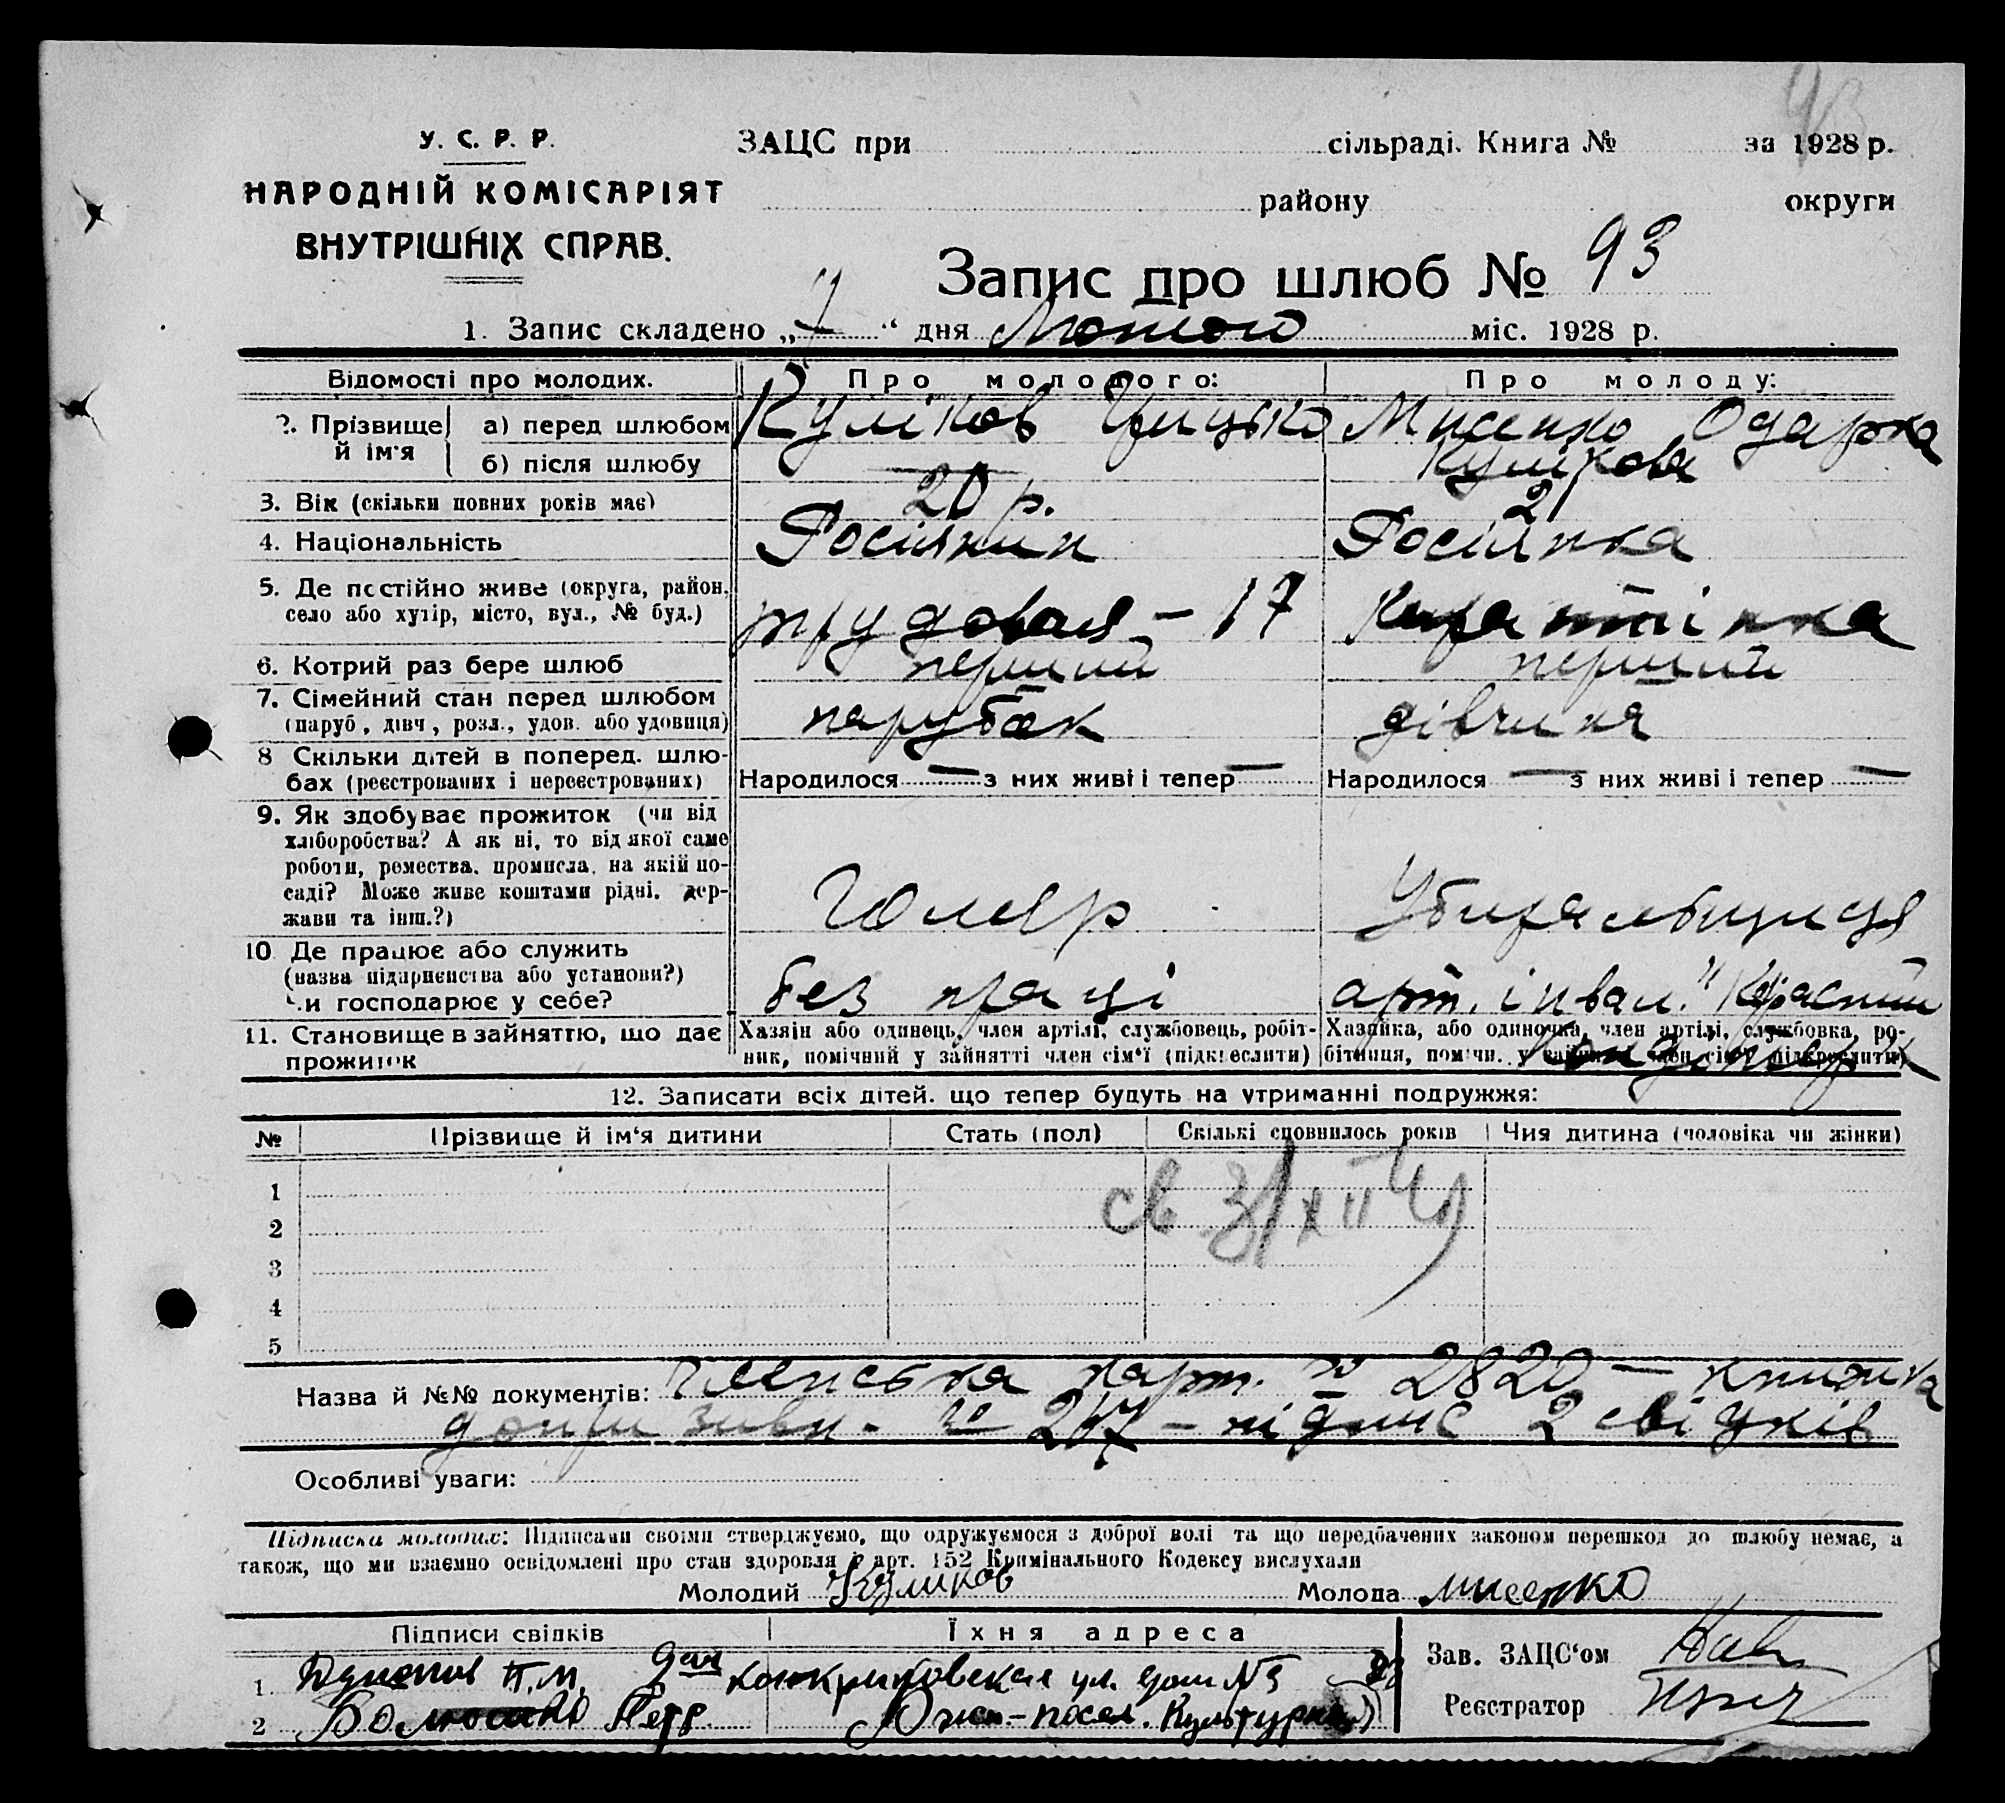 93
У. С. Р. Р.
НАРОДНІЙ КОМІСАРІЯТ
ВНУТРІШНІХ СПРАВ.
ЗАЦС при сільраді. Книга № за 1928 р.
району округи
Запис про шлюб № 93
1. Запис складено „7“ дня Лютого міс. 1928 р.
Відомості про молодих. Про молодого: Про молоду:
2. Прізвище й ім'я а) перед шлюбом Куліков Грицько Мисенко Одарка
б) після шлюбу — Кулікова
3. Вік (скільки повних років має) 20 р. 21
4. Національність Росіянин Росіянка
5. Де постійно живе (округа, район, село або хутір, місто, вул., № буд.) трудовая – 17
6. Котрий раз бере шлюб перший перший
7. Сімейний стан перед шлюбом (паруб., дівч., розл., удов. або удовиця) парубок дівчина
8 Скільки дітей в поперед. шлюбах (реєстрованих і нереєстрованих) Народилося — з них живі і тепер — Народилося — з них живі і тепер —
9. Як здобуває прожиток (чи від
хліборобства? А як ні, то від якої саме
роботи, ремества, промисла, на якій по-
саді? Може живе коштами рідні, дер-
жави та інш.?) Убиральщиця
10. Де працює або служить
(назва підприємства або установи?)
Чи господарює у себе? без праці арт. інвал. "Красний
11. Становище в зайняттю, що дає прожиток
Хазяїн або одинець, член артілі, службовець, робіт-
ник, помічний у зайнятті член сім'ї (підкреслити)
Хазяйка, або одиночка, член артілі, службовка, ро-
бітниця, помічн. у зайнятті член сім'ї (підкреслити)
12. Записати всіх дітей, що тепер будуть на утриманні подружжя:
№ Прізвище й ім'я дитини Стать (пол) Скількі сповнилось років Чия дитина (чоловіка чи жінки)
1
2
3
4
5
Назва й №№ документів: Членська карт. № 2820 – книжка
допризивн. № 247 – підпис 2 свідків
Особливі уваги:
Підписка молодих: Підписами своїми стверджуємо, що одружуємося з доброї волі та що передбачених законом перешкод до шлюбу немає, а
також, що ми взаємно освідомлені про стан здоровля і арт. 152 Кримінального Кодексу вислухали
Молодий Куликов Молода Мисенко
Підписи свідків Їхня адреса
Зав. ЗАЦС'ом
1. П.М. ул. дом № 3
Реєстратор
2 Петр посел. Культурный